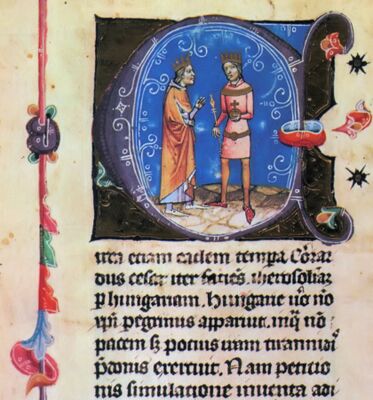 Circa eciam eadem tempa Cōra
dus cesar iter faciēs iherosolimā
p hungariam. Hungarie uō nō
pegrinus apparuit. inq̄ nō
pacem sꝫ potius tirannicā
pdonis exercuit. Nam peticio
nis simulacione inuenta adi